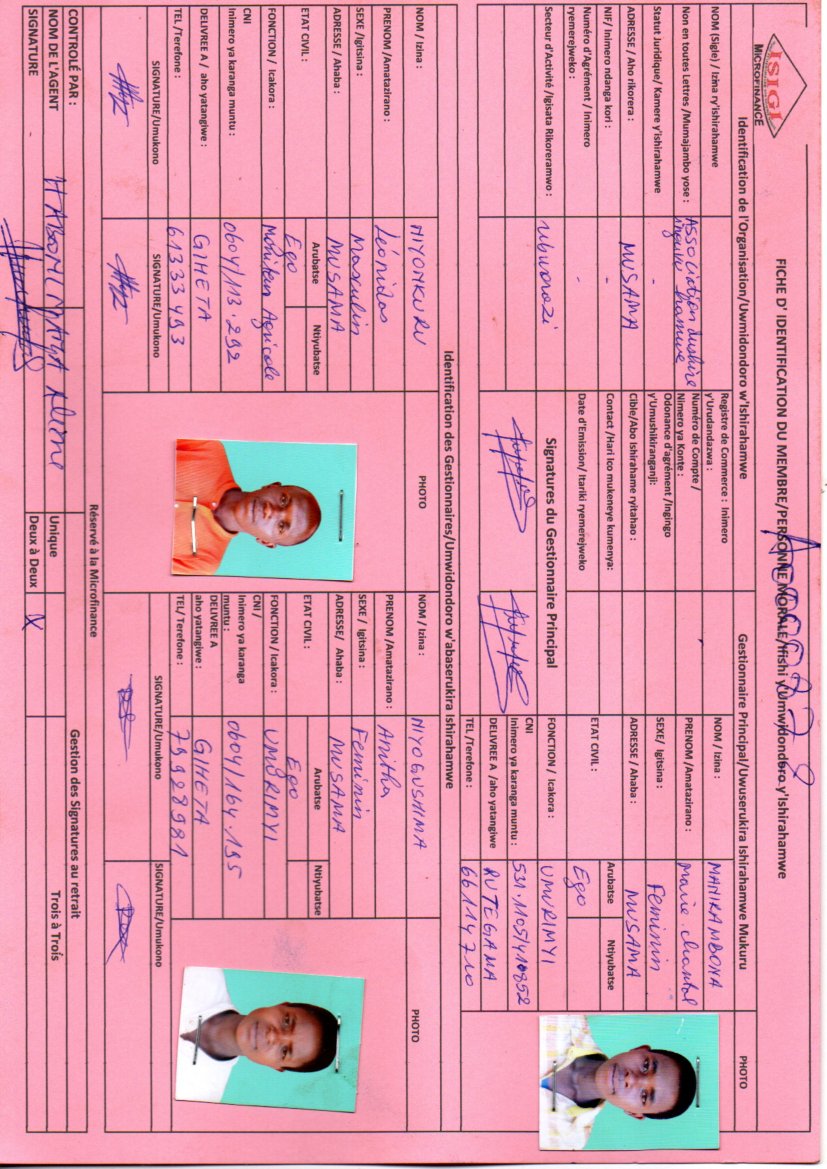 ISIGI
MICROFINANCE
FICHE D' IDENTIFICATION DU MEMBRE/PERSONNE MORALE/Ifishi y'Umwidondoro y'Ishirahamwe
Identification de l'Organisation/Uwmidondoro w'Ishirahamwe
Gestionnaire Principal/Uwuserukira Ishirahamwe Mukuru
PHOTO
NOM (Sigle) / Izina ry'ishirahamwe
Non en toutes Lettres /Mumajambo yose :
ASSociation dushire
hamwe
Statut juridique/ Kamere y'ishirahamwe
-
ADRESSE / Aho rikorera :
MUSAMA
NIF/ Inimero ndanga kori :
-
Numéro d'Agrément / Inimero
ryemerejweko :
-
Secteur d'Activité /Igisata Rikoreramwo :
ubworozi
Registre de Commerce : Inimero
y'Urudandazwa :
Numéro de Compte /
Nimero ya Konte :
Odonance d'agrément /Ingingo
y'Umushikiranganji:
Cible/Abo Ishirahame ryitahao :
Contact /Hari ico mukeneye kumenya:
Date d'Emission/ Itariki ryemerejweko
Signatures du Gestionnaire Principal
NOM / Izina :
MANIRAMBONA
PRENOM /Amatazirano :
Marie chantal
SEXE/ Igitsina :
Feminin
ADRESSE / Ahaba :
MUSAMA
ETAT CIVIL :
Arubatse
Ntiyubatse
Ego
FONCTION / Icakora :
UMURIMYI
CNI
Inimero ya karanga muntu :
531.1105/410852
DELIVREE A /aho yatangiwe
RUTEGAMA
TEL /Terefone :
66114710
Identification des Gestionnaires/Umwidondoro w'abaserukira Ishirahamwe
NOM / Izina :
NIYONKURU
PHOTO
PRENOM /Amatazirano :
Léonidas
SEXE /Igitsina :
Masculin
ADRESSE / Ahaba :
MUSAMA
ETAT CIVIL :
Arubatse
Ntiyubatse
Ego
FONCTION / Icakora :
Moniteur Agricole
CNI
Inimero ya karanga muntu :
0604/113.292
DELIVREE A / aho yatangiwe :
GIHETA
TEL /Terefone :
61333493
SIGNATURE/Umukono
SIGNATURE/Umukono
NOM / Izina :
NIYOGUSHIMA
PHOTO
PRENOM /Amatazirano :
Anitha
SEXE / Igitsina :
Feminin
ADRESSE/ Ahaba :
MUSAMA
ETAT CIVIL :
Arubatse
Ntiyubatse
Ego
FONCTION / Icakora :
UMURIMYI
CNI /
Inimero ya karanga
muntu :
0604/164.195
DELIVREE A
aho yatangiwe :
GIHETA
TEL/ Terefone :
79928981
SIGNATURE/Umukono
SIGNATURE/Umukono
Réservé à la Microfinance
CONTROLÉ PAR :
Gestion des Signatures au retrait
NOM DE L'AGENT
HABONIMANA
Unique
Trois à Trois
SIGNATURE
Deux à Deux
X